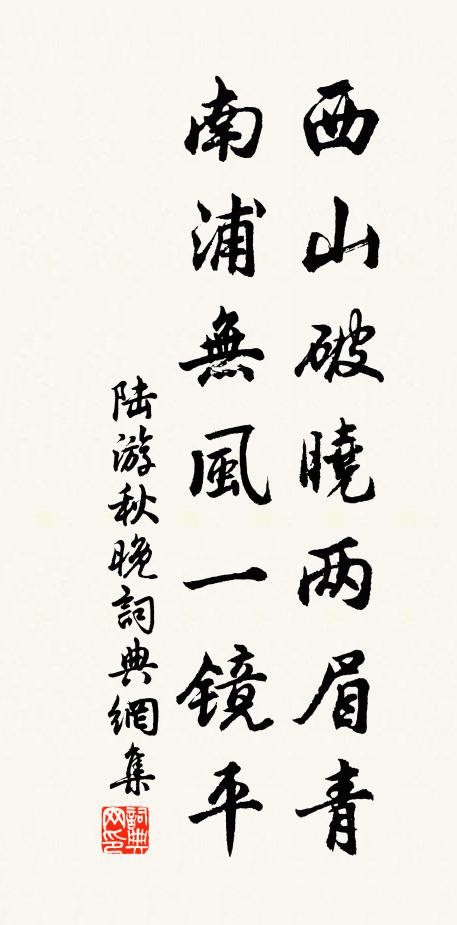 西山破曉两眉青
南浦無風一镜平
陆游秋晚詞典網集
詞典网印